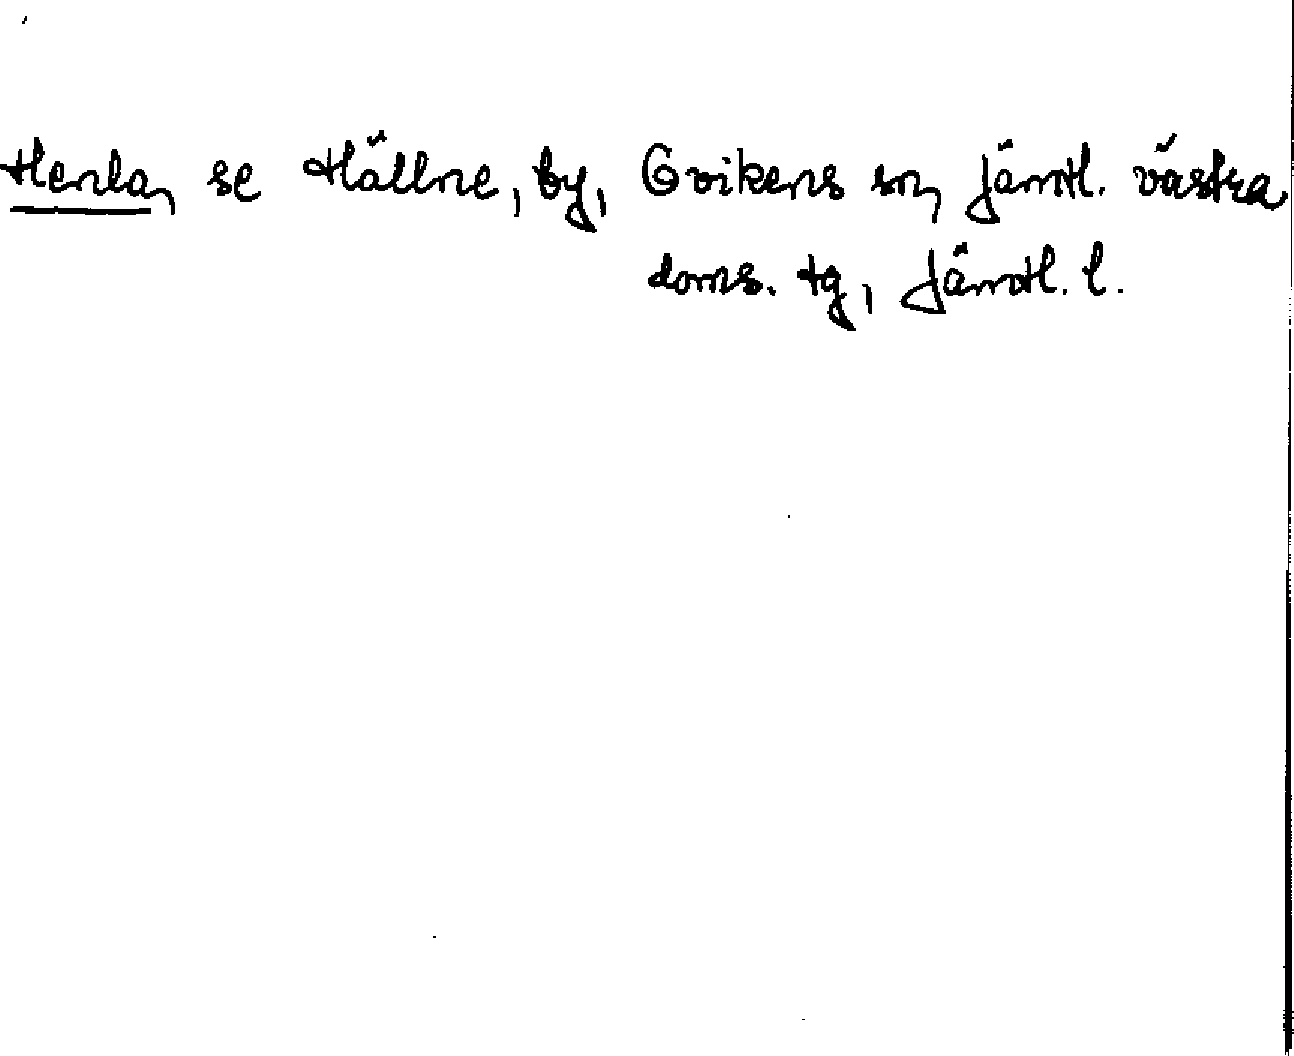 Henla, se Hällne, by, Ovikens sn, Jämtl. västra
doms. tg, Jämtl. l.